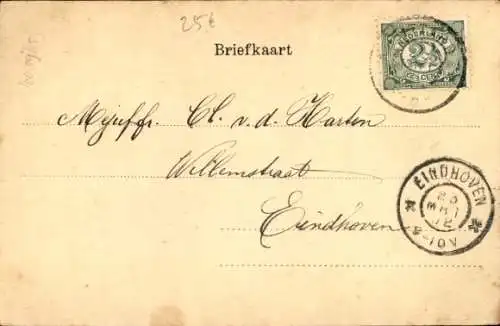 25 €
Briefkaart
NEDERLAND
2½
CENT
Mejuffr. Cl. v. d. Harten
Willemstraat
Eindhoven
EINDHOVEN